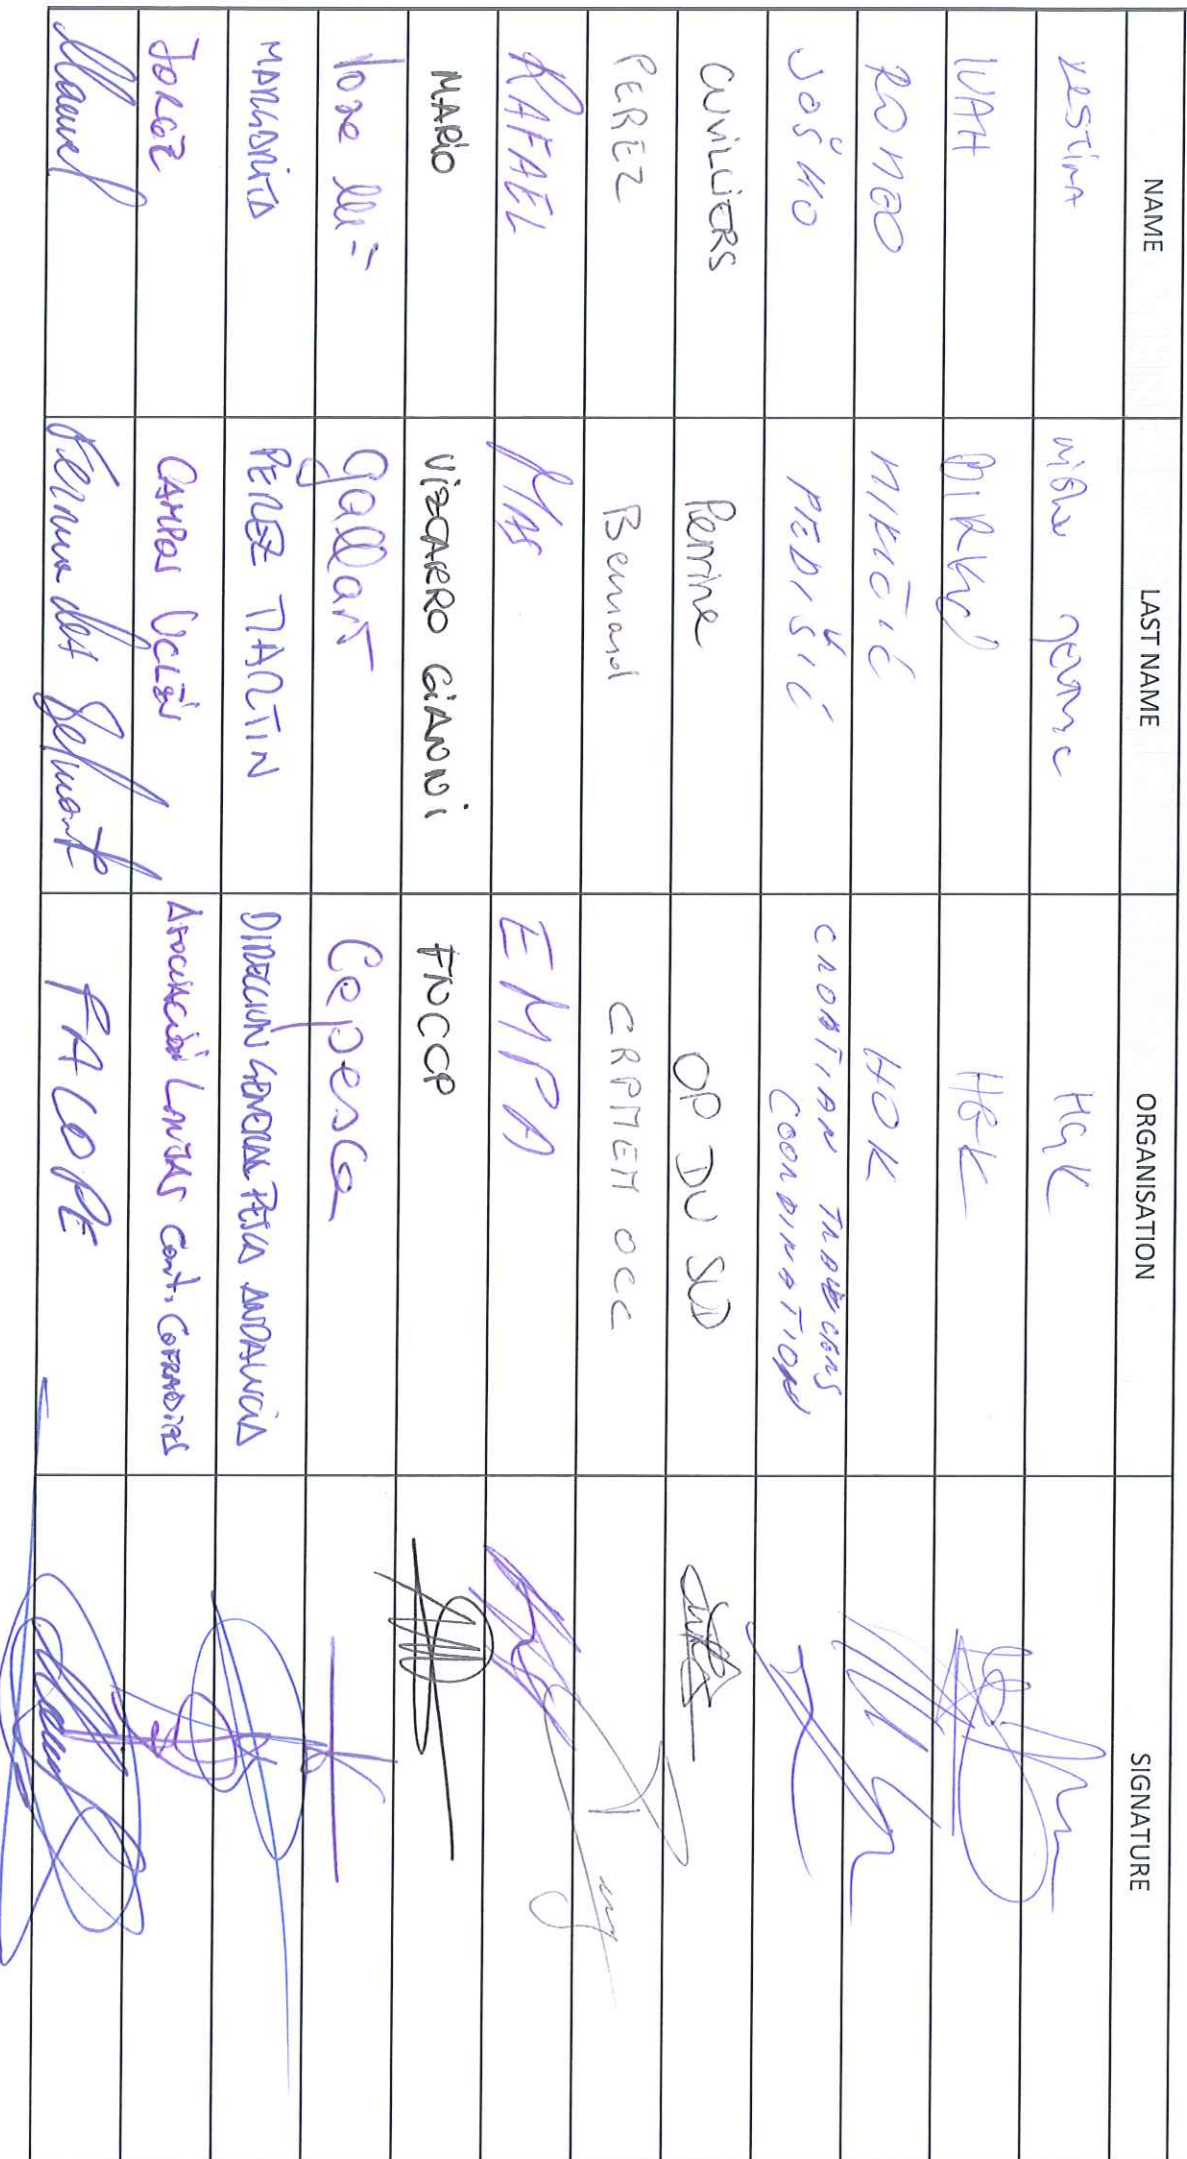 NAME LAST NAME ORGANISATION SIGNATURE
HGK
IVAN HGK
ROMEO MIKIČIĆ HOK
JOŠKO PEDIŠIĆ CROATIAN
COORDINATION
CUVILLIERS Perrine OP DU SUD
PEREZ Bernard CRPMEM OCC
RAFAEL MAS EMPA
MARIO VIZCARRO GIANNI FNCCP
Jose Gallart Cepesca
MARGARITA PEREZ MARTIN DIRECCION GENERAL PESCA ANDALUCIA
JORGE CAMPOS UCLÉS ASOCIACIÓN LONJAS Cont. COFRADIAS
Manuel Fernandez Belmonte FACOPE